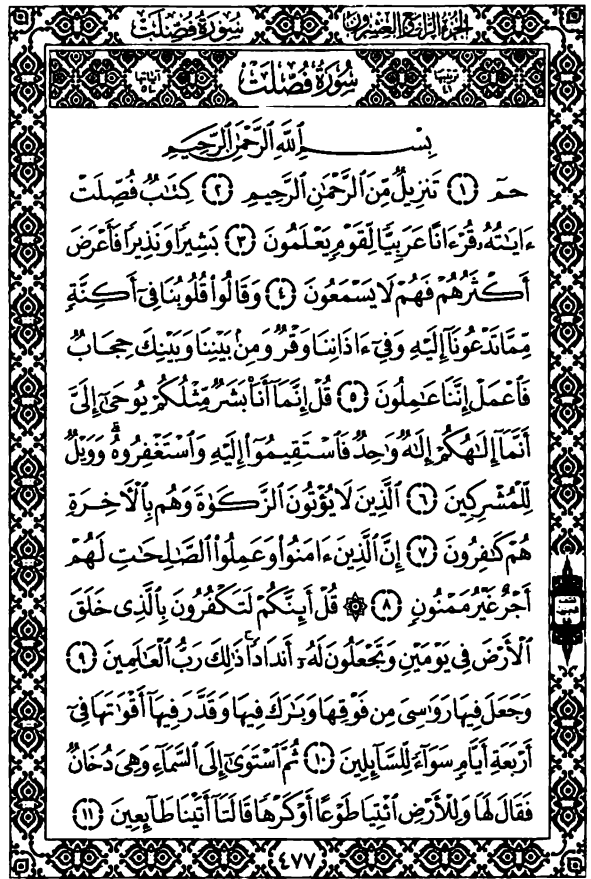 الجزء الرابع والعشرون سورة فصلت
ترتيبها ٤١ سورة فصلت آياتها ٥٤
بِسْمِ ٱللَّهِ ٱلرَّحْمَٰنِ ٱلرَّحِيمِ
حمٓ ﴿١﴾ تَنزِيلٌ مِّنَ ٱلرَّحْمَٰنِ ٱلرَّحِيمِ ﴿٢﴾ كِتَٰبٌ فُصِّلَتْ
ءَايَٰتُهُۥ قُرْءَانًا عَرَبِيًّا لِّقَوْمٍ يَعْلَمُونَ ﴿٣﴾ بَشِيرًا وَنَذِيرًا فَأَعْرَضَ
أَكْثَرُهُمْ فَهُمْ لَا يَسْمَعُونَ ﴿٤﴾ وَقَالُوا۟ قُلُوبُنَا فِىٓ أَكِنَّةٍ
مِّمَّا تَدْعُونَآ إِلَيْهِ وَفِىٓ ءَاذَانِنَا وَقْرٌ وَمِنۢ بَيْنِنَا وَبَيْنِكَ حِجَابٌ
فَٱعْمَلْ إِنَّنَا عَٰمِلُونَ ﴿٥﴾ قُلْ إِنَّمَآ أَنَا۠ بَشَرٌ مِّثْلُكُمْ يُوحَىٰٓ إِلَىَّ
أَنَّمَآ إِلَٰهُكُمْ إِلَٰهٌ وَٰحِدٌ فَٱسْتَقِيمُوٓا۟ إِلَيْهِ وَٱسْتَغْفِرُوهُ ۗ وَوَيْلٌ
لِّلْمُشْرِكِينَ ﴿٦﴾ ٱلَّذِينَ لَا يُؤْتُونَ ٱلزَّكَوٰةَ وَهُم بِٱلْءَاخِرَةِ
هُمْ كَٰفِرُونَ ﴿٧﴾ إِنَّ ٱلَّذِينَ ءَامَنُوا۟ وَعَمِلُوا۟ ٱلصَّٰلِحَٰتِ لَهُمْ
أَجْرٌ غَيْرُ مَمْنُونٍ ﴿٨﴾ ۞ قُلْ أَئِنَّكُمْ لَتَكْفُرُونَ بِٱلَّذِى خَلَقَ
ٱلْأَرْضَ فِى يَوْمَيْنِ وَتَجْعَلُونَ لَهُۥٓ أَندَادًا ۚ ذَٰلِكَ رَبُّ ٱلْعَٰلَمِينَ ﴿٩﴾
وَجَعَلَ فِيهَا رَوَٰسِىَ مِن فَوْقِهَا وَبَٰرَكَ فِيهَا وَقَدَّرَ فِيهَآ أَقْوَٰتَهَا فِىٓ
أَرْبَعَةِ أَيَّامٍ سَوَآءً لِّلسَّآئِلِينَ ﴿١٠﴾ ثُمَّ ٱسْتَوَىٰٓ إِلَى ٱلسَّمَآءِ وَهِىَ دُخَانٌ
فَقَالَ لَهَا وَلِلْأَرْضِ ٱئْتِيَا طَوْعًا أَوْ كَرْهًا قَالَتَآ أَتَيْنَا طَآئِعِينَ ﴿١١﴾
٤٧٧